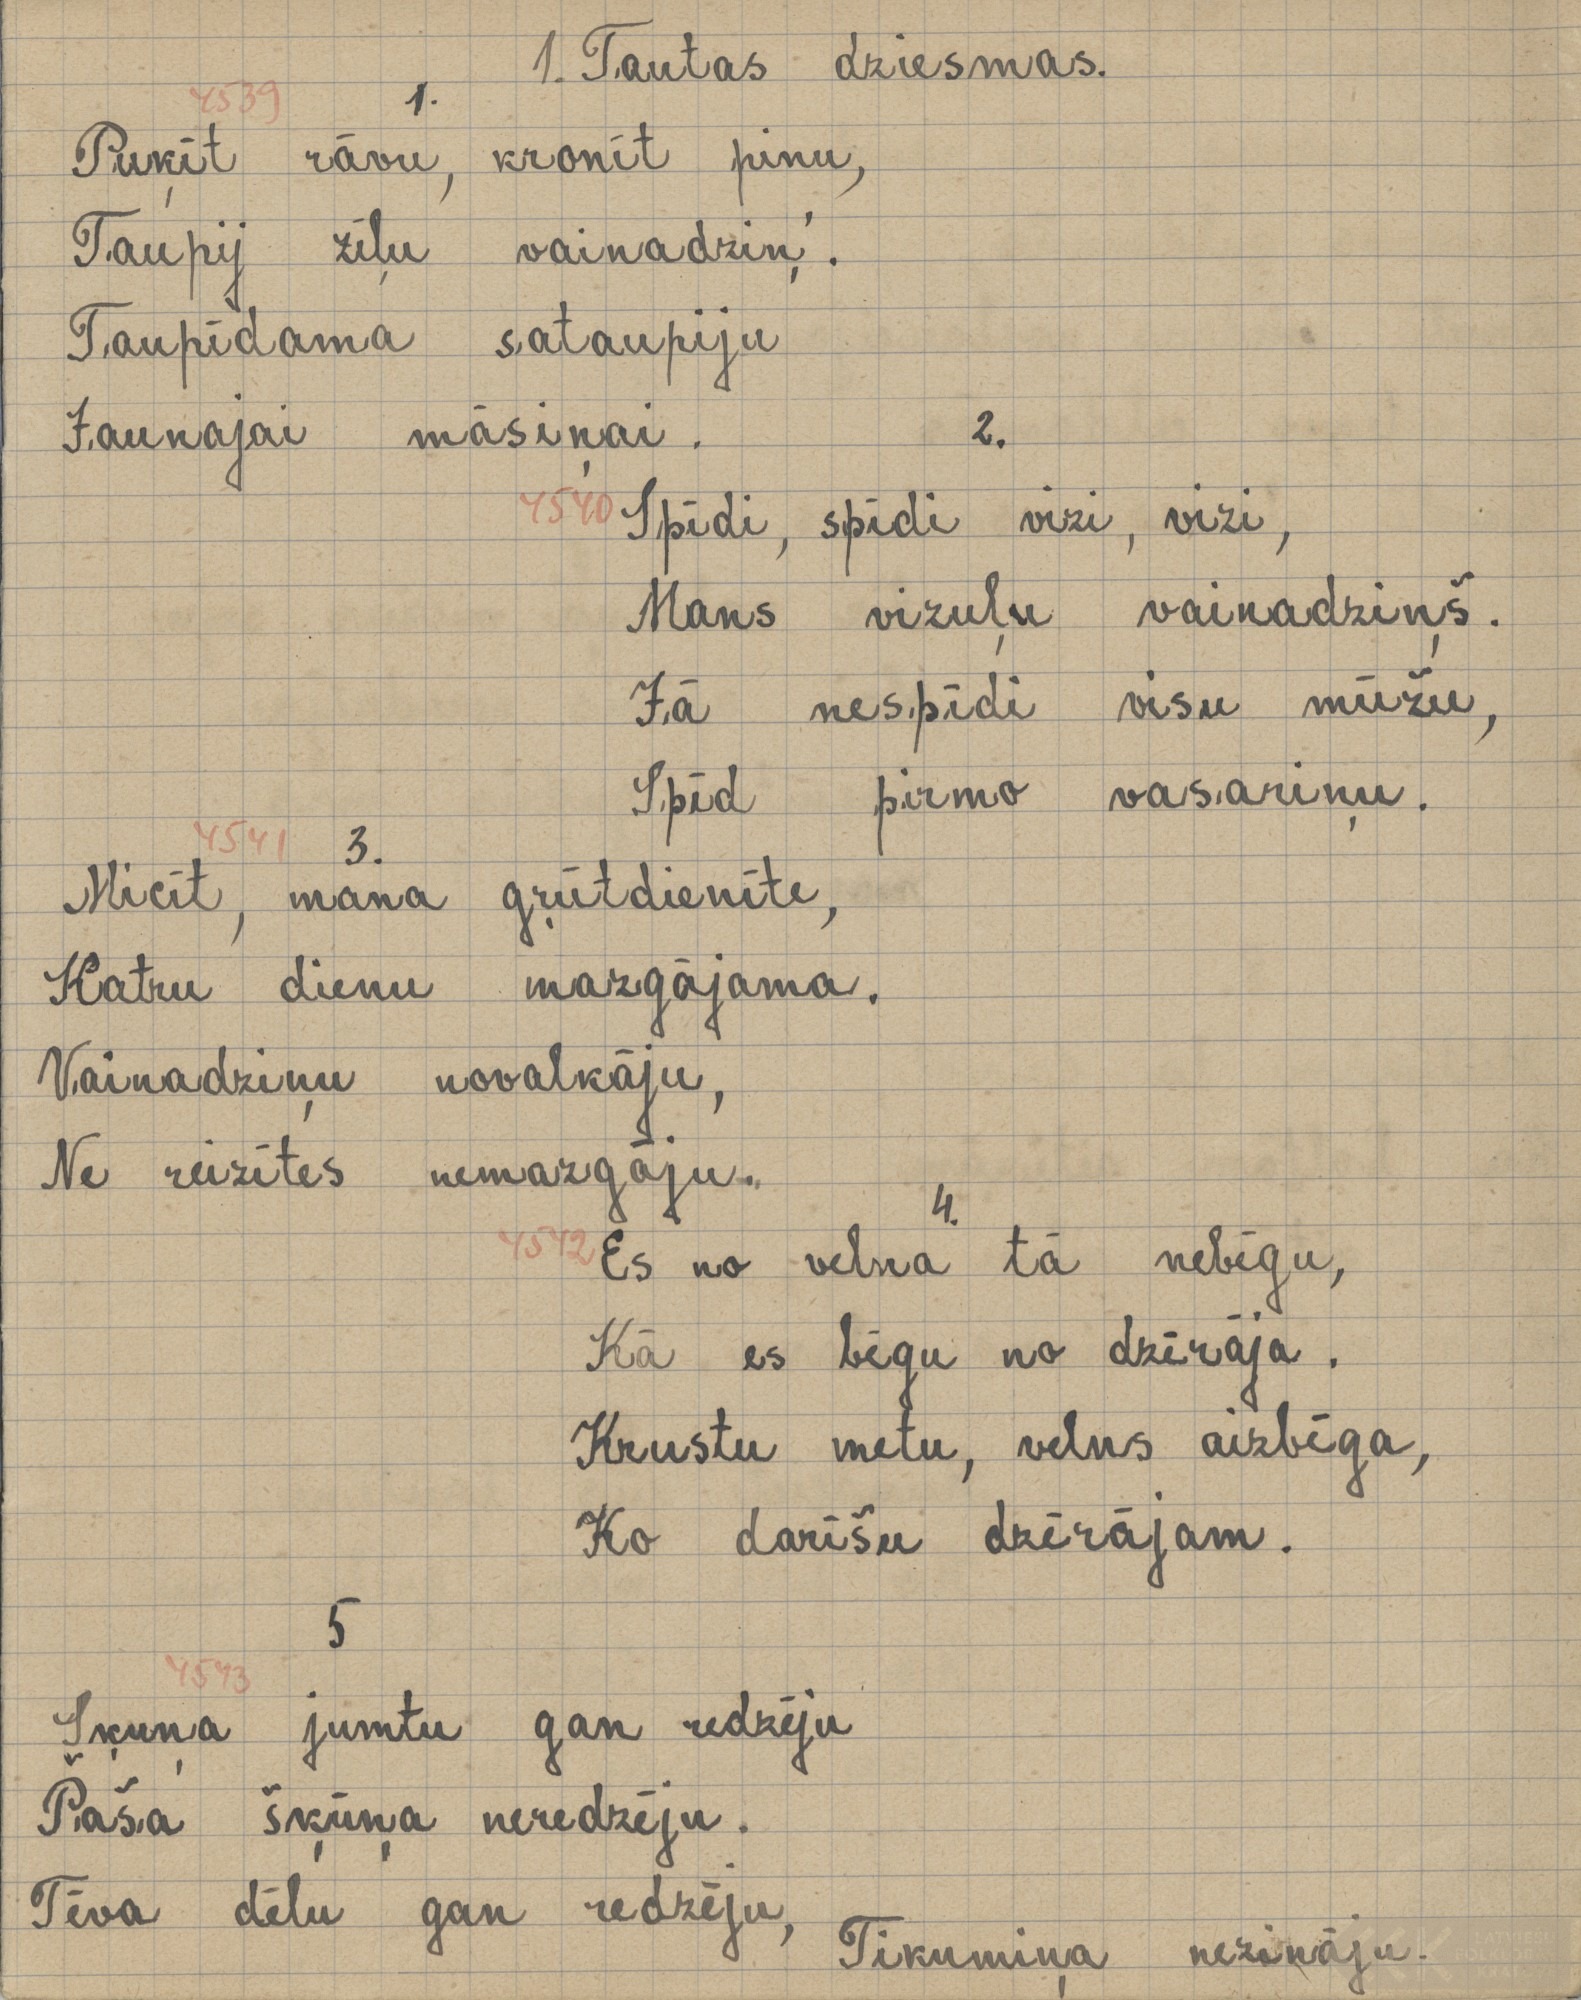 1. Tautas dziesmas.
4539 1.
Puķīt rāvu, kronīt pinu,
Taupij zīļu vainadziņ'.
Taupīdama sataupiju
Jaunajai māsiņai.
2.
4540 Spīdi, spīdi vizi, vizi,
Mans vizuļu vainadziņš.
Jā nespīdi visu mūžu,
Spīd pirmo vasariņu.
4541 3.
Micīt, mana gŗūtdienīte,
Katru dienu mazgājama.
Vainadziņu novalkāju,
Ne reizītes nemazgāju.
4.
4542 Es no velna tā nebēgu,
Kā es bēgu no dzērāja.
Krustu metu, velns aizbēga,
Ko darīšu dzērājam.
5
4543
Šķuņa jumtu gan redzēju
Paša šķūņa neredzēju.
Tēva dēlu gan redzēju,
Tikumiņa nezināju.